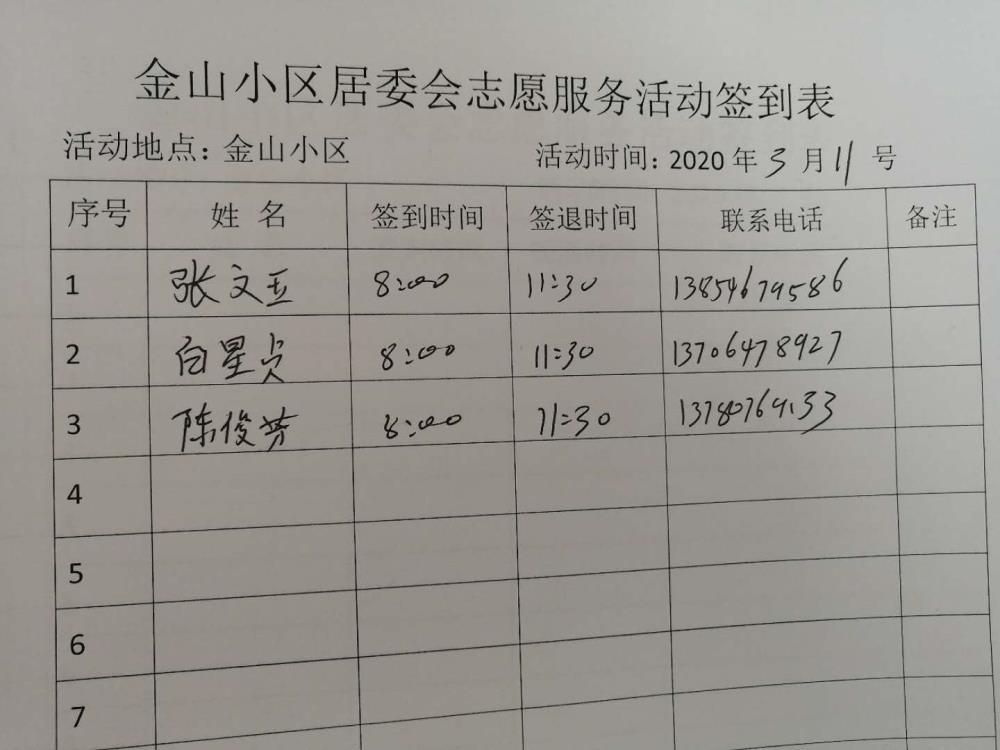 金山小区居委会志愿服务活动签到表
活动地点：金山小区 活动时间：2020 年 3 月 11 号
序号 姓 名 签到时间 签退时间 联系电话 备注
1 张文玉 8:00 11:30 13854679586
2 白星贞 8:00 11:30 13706478927
3 陈俊芳 8:00 11:30 13780769133
4
5
6
7